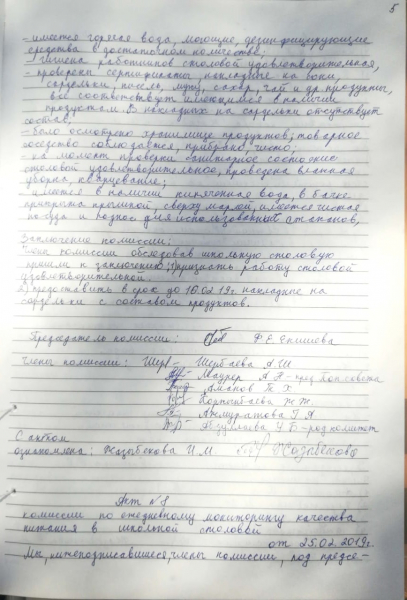 5
- имеется горячая вода, моющие, дезинфицирующие
средства в достаточном количестве;
- гигиена работников столовой удовлетворительная,
- проверены сертификаты, накладные на
сардельки, кисель, муку, сахар, чай и др. продукты,
все соответствует имеющимся в наличии
продуктам. В накладных на сардельки отсутствует
состав;
- было осмотрено хранилище продуктов; товарное
соседство соблюдается, прибрано чисто;
- на момент проверки санитарное состояние
столовой удовлетворительное, проведена влажная
уборка, кварцевание;
- имеется в наличии кипяченная вода, в бачке
прикрыта крышкой, сверху марлей, имеется чистая
посуда и поднос для использованных стаканов,
Заключение комиссии:
Члены комиссии обследовав школьную столовую
пришли к заключению: 1) признать работу столовой
удовлетворительной
2) предоставить в срок до 16.02.19г. накладные на
сардельки с составом продуктов.
Председатель комиссии: Ф.Е. Епишева
Члены комиссии: Шербаева А.Ш
Маурер А.В - пред. Поп. совета
Аманов Т.Х
Корпенбаева Ж.Ж.
Ахмуратова Г.А
Абдуллаева А.Б - род. комитет
С актом
ознакомлена: Казыбекова И.М Казыбекова
Акт №8
комиссии по ежедневному мониторингу качества
питания в школьной столовой
от 25.02.2019г.
Мы, нижеподписавшиеся, члены комиссии, под предсе-